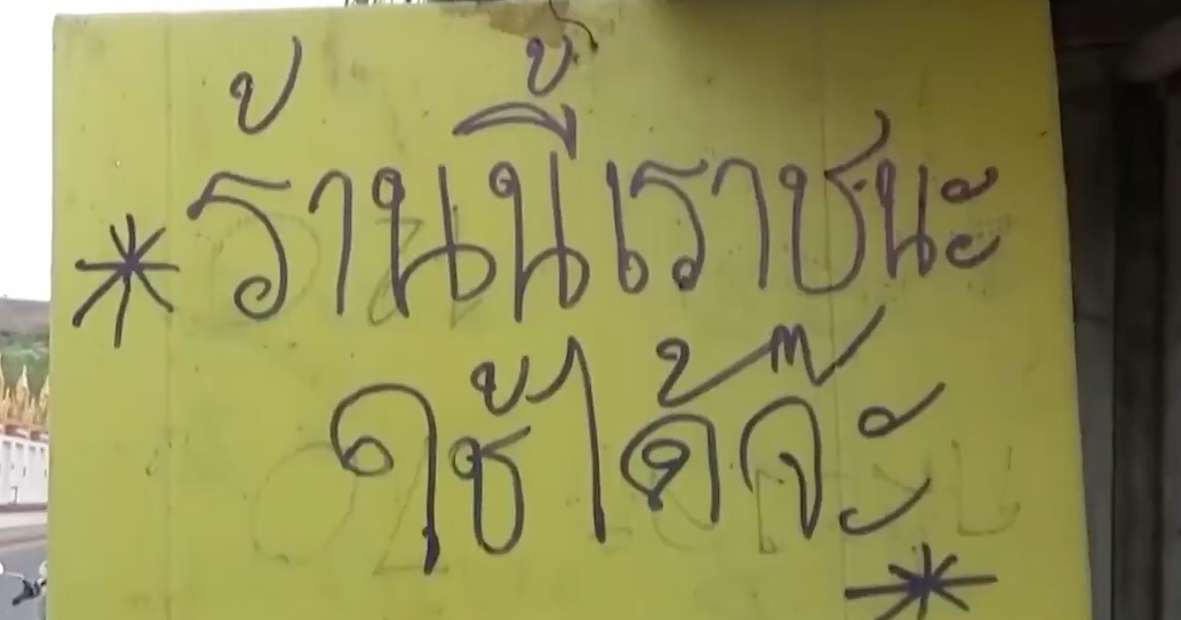 * ร้านนี้เราชนะ
ใช้ได้จ๊ะ *